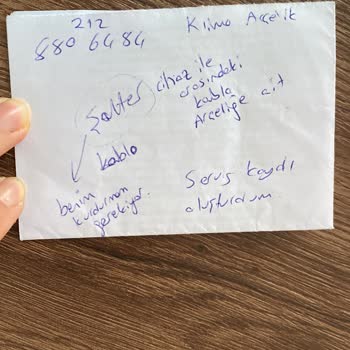 212
880 6484
Klima Arçelik
Şalter cihaz ile
arasındaki
kablo
Arçeliğe ait
kablo
benim
kurdurmam
gerekiyor.
Servis kaydı
oluşturdum